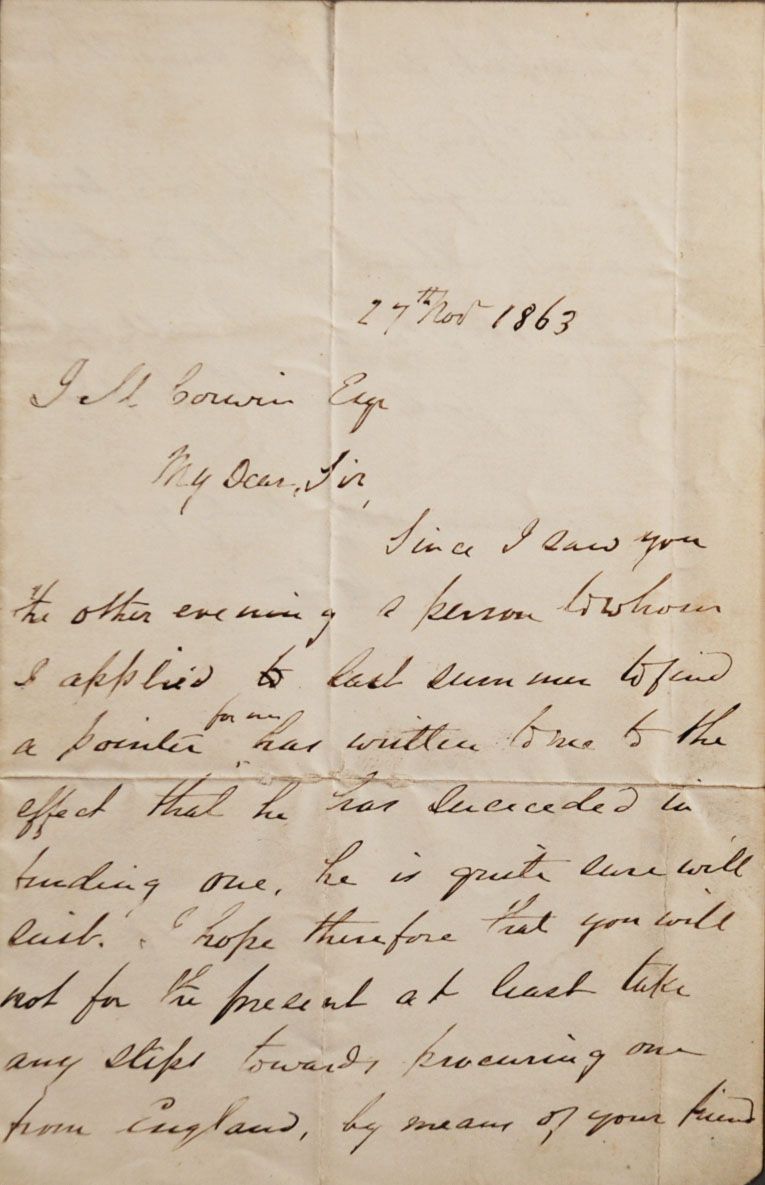 27th Nov 1863
Corwin Esqr
My Dear, Sir,
Since I saw you
the other evening a person to whom
I applied to last summer to find
a pointer for me has written to me to the
effect that he has succeeded in
finding one, he is quite sure will
suit. I hope therefore that you will
not for the present at least take
any steps towards procuring one
from England, by means of your friend